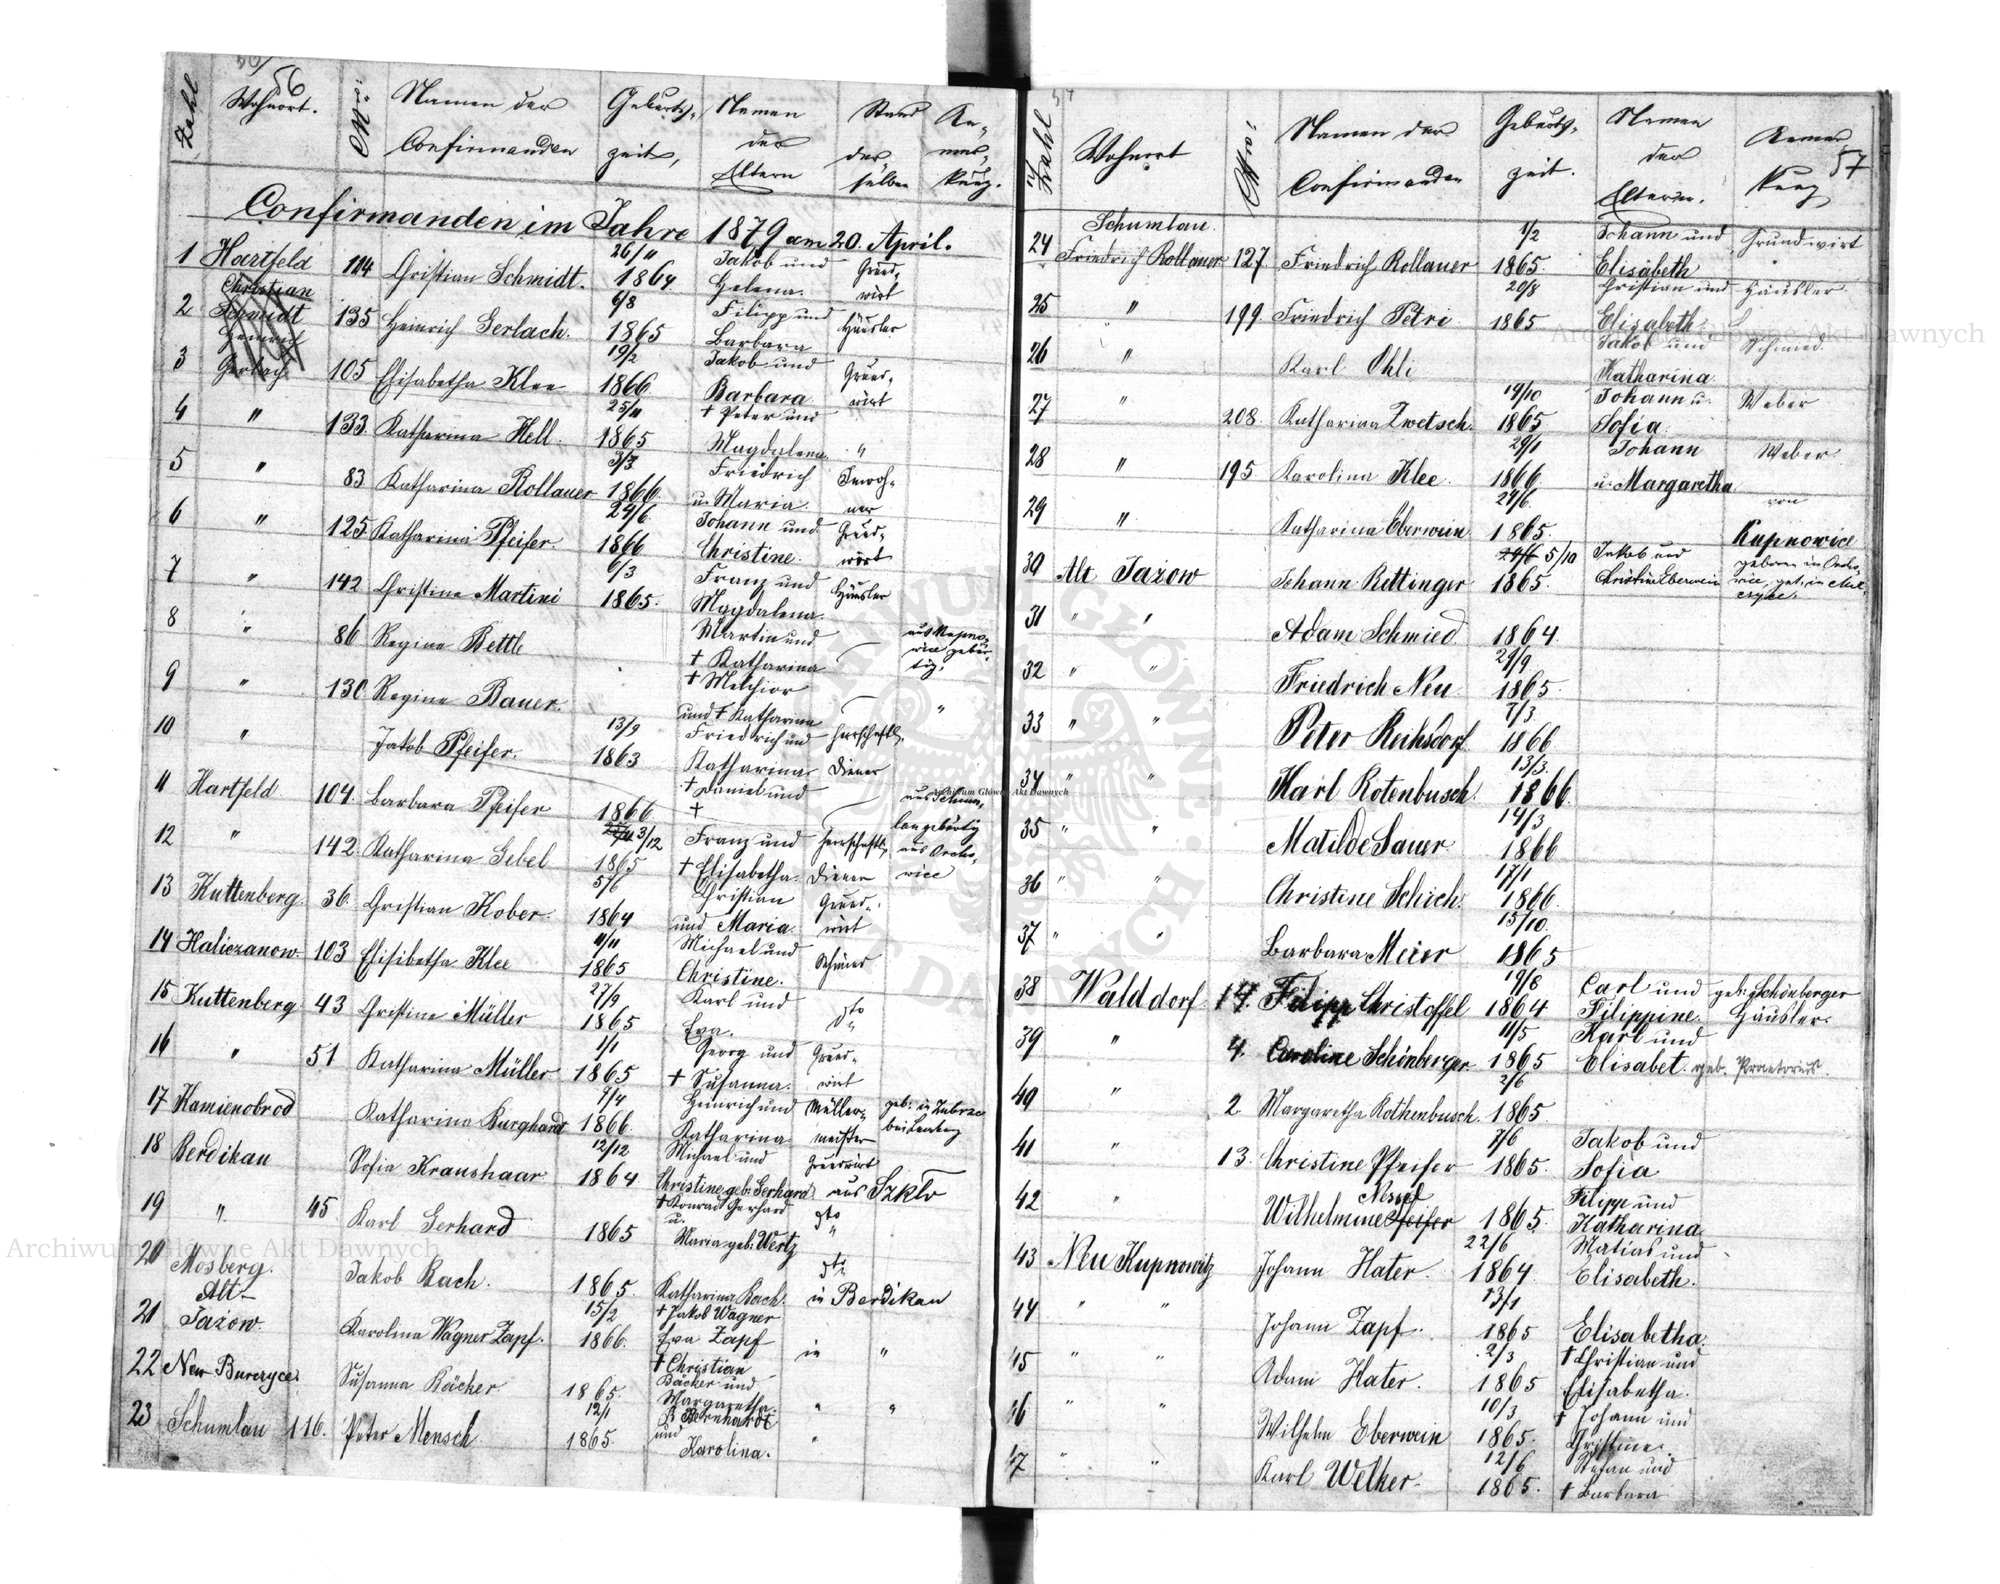 56
Zahl Wohnort. Nro: Namen der Confirmanden Geburts- zeit, Namen der Eltern Stand der selben An- mer- kung.
Confirmanden im Jahre 1879 am 20. April.
1 Hartfeld 114 Christian Schmidt. 26/11 1864 Jakob und Helena. Grund- wirt
Christian Schmidt
2 135 Heinrich Gerlach. 6/8 1865 Filipp und Barbara Häusler
Heinrich Gerlach
3 105 Elisabetha Klee 19/2 1866 Jakob und Barbara Grund- wirt
4 " 133. Katharina Hell. 25/11 1865 † Peter und Magdalena. "
5 " 83 Katharina Rollauer 3/3 1866 Friedrich u. Maria. Inwoh- ner
6 " 125 Katharina Pfeifer. 24/6 1866 Johann und Christine. Grund- wirt
7 " 142 Christina Martini 6/3 1865. Franz und Magdalena. Häusler
8 " 86 Regina Bettl Martin und † Katharina — aus Kupno- wice gebür- tig.
9 " 130 Regine Bauer. † Melchior und † Katharina — "
10 " Jakob Pfeifer. 13/9 1863 Friedrich und Katharina herrschaftl. Diener
11 Hartfeld 104. Barbara Pfeifer 1866 † Daniel und † — aus Schum- lau gebürtig
12 " 142 Katharina Gebel 3/12 1865 Franz und † Elisabetha. herrschaftl. Diener aus Orcho- wice
13 Kuttenberg 36. Christian Kober. 5/6 1864 Christian und Maria. Grund- wirt
14 Haliczanow. 103 Elisibetha Klee 11/11 1865 Michael und Christine. Schmied
15 Kuttenberg 43 Christine Müller 27/9 1865 Karl und Eva. dto "
16 " 51 Katharina Müller 1/1 1865 Georg und † Susanna. Grund- wirt
17 Kamienobrod Katharina Burghardt 7/4 1866. Heinrich und Katharina Müller- meister geb: in Zubrze bei Lemberg
18 Berdikau Sofia Kraushaar 12/12 1864. Michael und Christine geb: Gerhard Grundwirt aus Szkło
19 " 45 Karl Gerhard 1865 † Konrad Gerhard u. Maria geb: Wertz dto "
20 Mosberg. Jakob Bach. 1865. Katharina Bach. dto in Berdikau
21 Alt- Jazow. Karolina Wagner Zapf. 15/2 1866. † Jakob Wagner Eva Zapf in "
22 Neu Burczyce. Susanna Bäcker 1865. † Christian Bäcker und Margaretha. " "
23 Schumlau 116. Peter Mensch 12/1 1865. Bernhardt und Karolina. "
57
Zahl Wohnort Nro: Namen der Confirmanden Geburts- zeit. Namen der Eltern. Anmer- kung
24 Schumlau. Friedrich Rollauer 127. Friedrich Rollauer 1/2 1865. Johann und Elisabeth Grundwirt
25 " 199. Friedrich Petri 20/8 1865 Christian und Elisabeth Häusler
26 " Karl Ohli Jakob und Katharina Schmied.
27 " 208. Katharina Zwetsch. 14/10 1865 Johann u. Sofia. Weber
28 " 195 Karolina Klee. 29/1 1866 Johann u. Margaretha Weber
29 " Katharina Eberwein 24/6 1865. von Kupnowice
30 Alt Jazow Johann Rettinger 5/10 1865. Jakob und Christine Eberwein
31 " " Adam Schmied 1864.
32 " " Friedrich Neu 29/9 1865.
33 " " Peter Reihsdorf 7/3 1866
34 " " Karl Rotenbusch. 13/3. 1866.
35 " " Matilde Sauer 14/3 1866
36 " " Christine Schich. 17/1 1866.
37 " " Barbara Meier 15/10. 1865
38 Walddorf 14. Filipp Christoffel 19/8 1864 Carl und Filippine. geb: Schönberger Häusler.
39 " 4. Caroline Schönberger 11/5 1865 Karl und Elisabet. geb. Praetorius.
40 " 2 Margaretha Rothenbusch. 2/6 1865.
41 " 13. Christine Pfeifer 7/6 1865. Jakob und Sofia
42 " Wilhelmine Pfeifer Nessel 1865. Filipp und Katharina
43 Neu Kupnowitz Johann Hater. 22/6 1864 Matias und Elisabeth.
44 " " Johann Zapf. 13/1 1865 Elisabetha.
45 " " Adam Hater. 2/3 1865 † Christian und Elisabetha.
46 " " Wilhelm Eberwein 10/3 1865. † Johann und Christine.
47 " " Karl Welker. 12/6 1865. Stefan und † Barbara
Archiwum Główne Akt Dawnych
Archiwum Główne Akt Dawnych
Archiwum Główne Akt Dawnych
ARCHIWUM GŁÓWNE AKT DAWNYCH